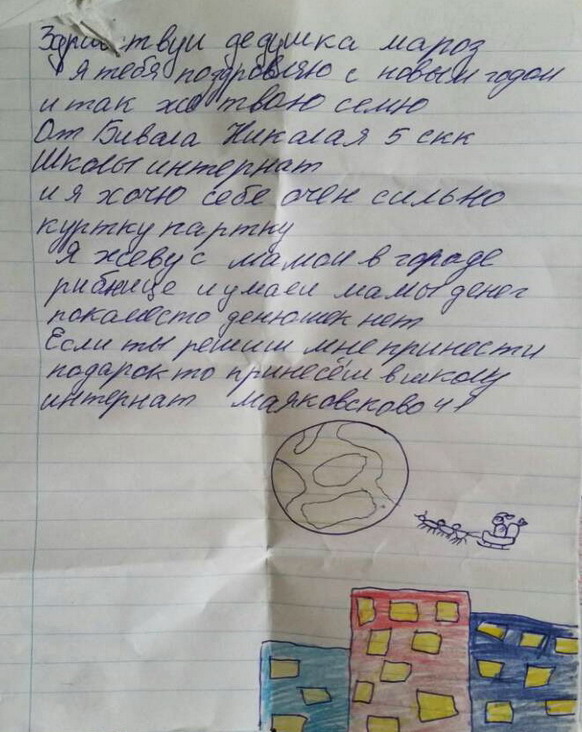 Здравствуи дедушка мароз
я тебя поздровляю с новым годом
и так же тваю семю
От Бивала Никалая 5 скк
Школы интернат
и я хочу себе очен сильно
куртку партку
Я жеву с мамои в городе
рибнице и умаеи мамы денег
покаместо денюшек нет
Если ты решиш мне принести
подарок то принесёш в школу
интернат маяковсково 41